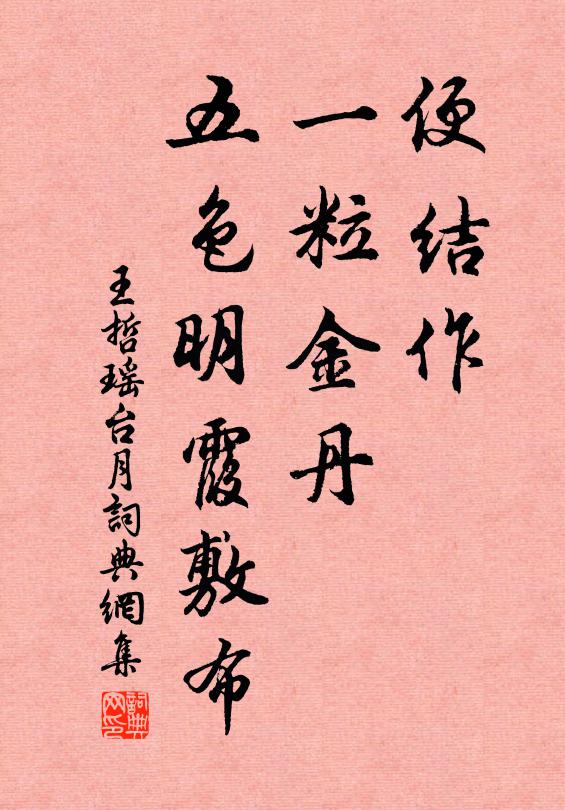 便结作
一粒金丹
五色明霞敷布
王哲瑶台月詞典網集
詞典
网印